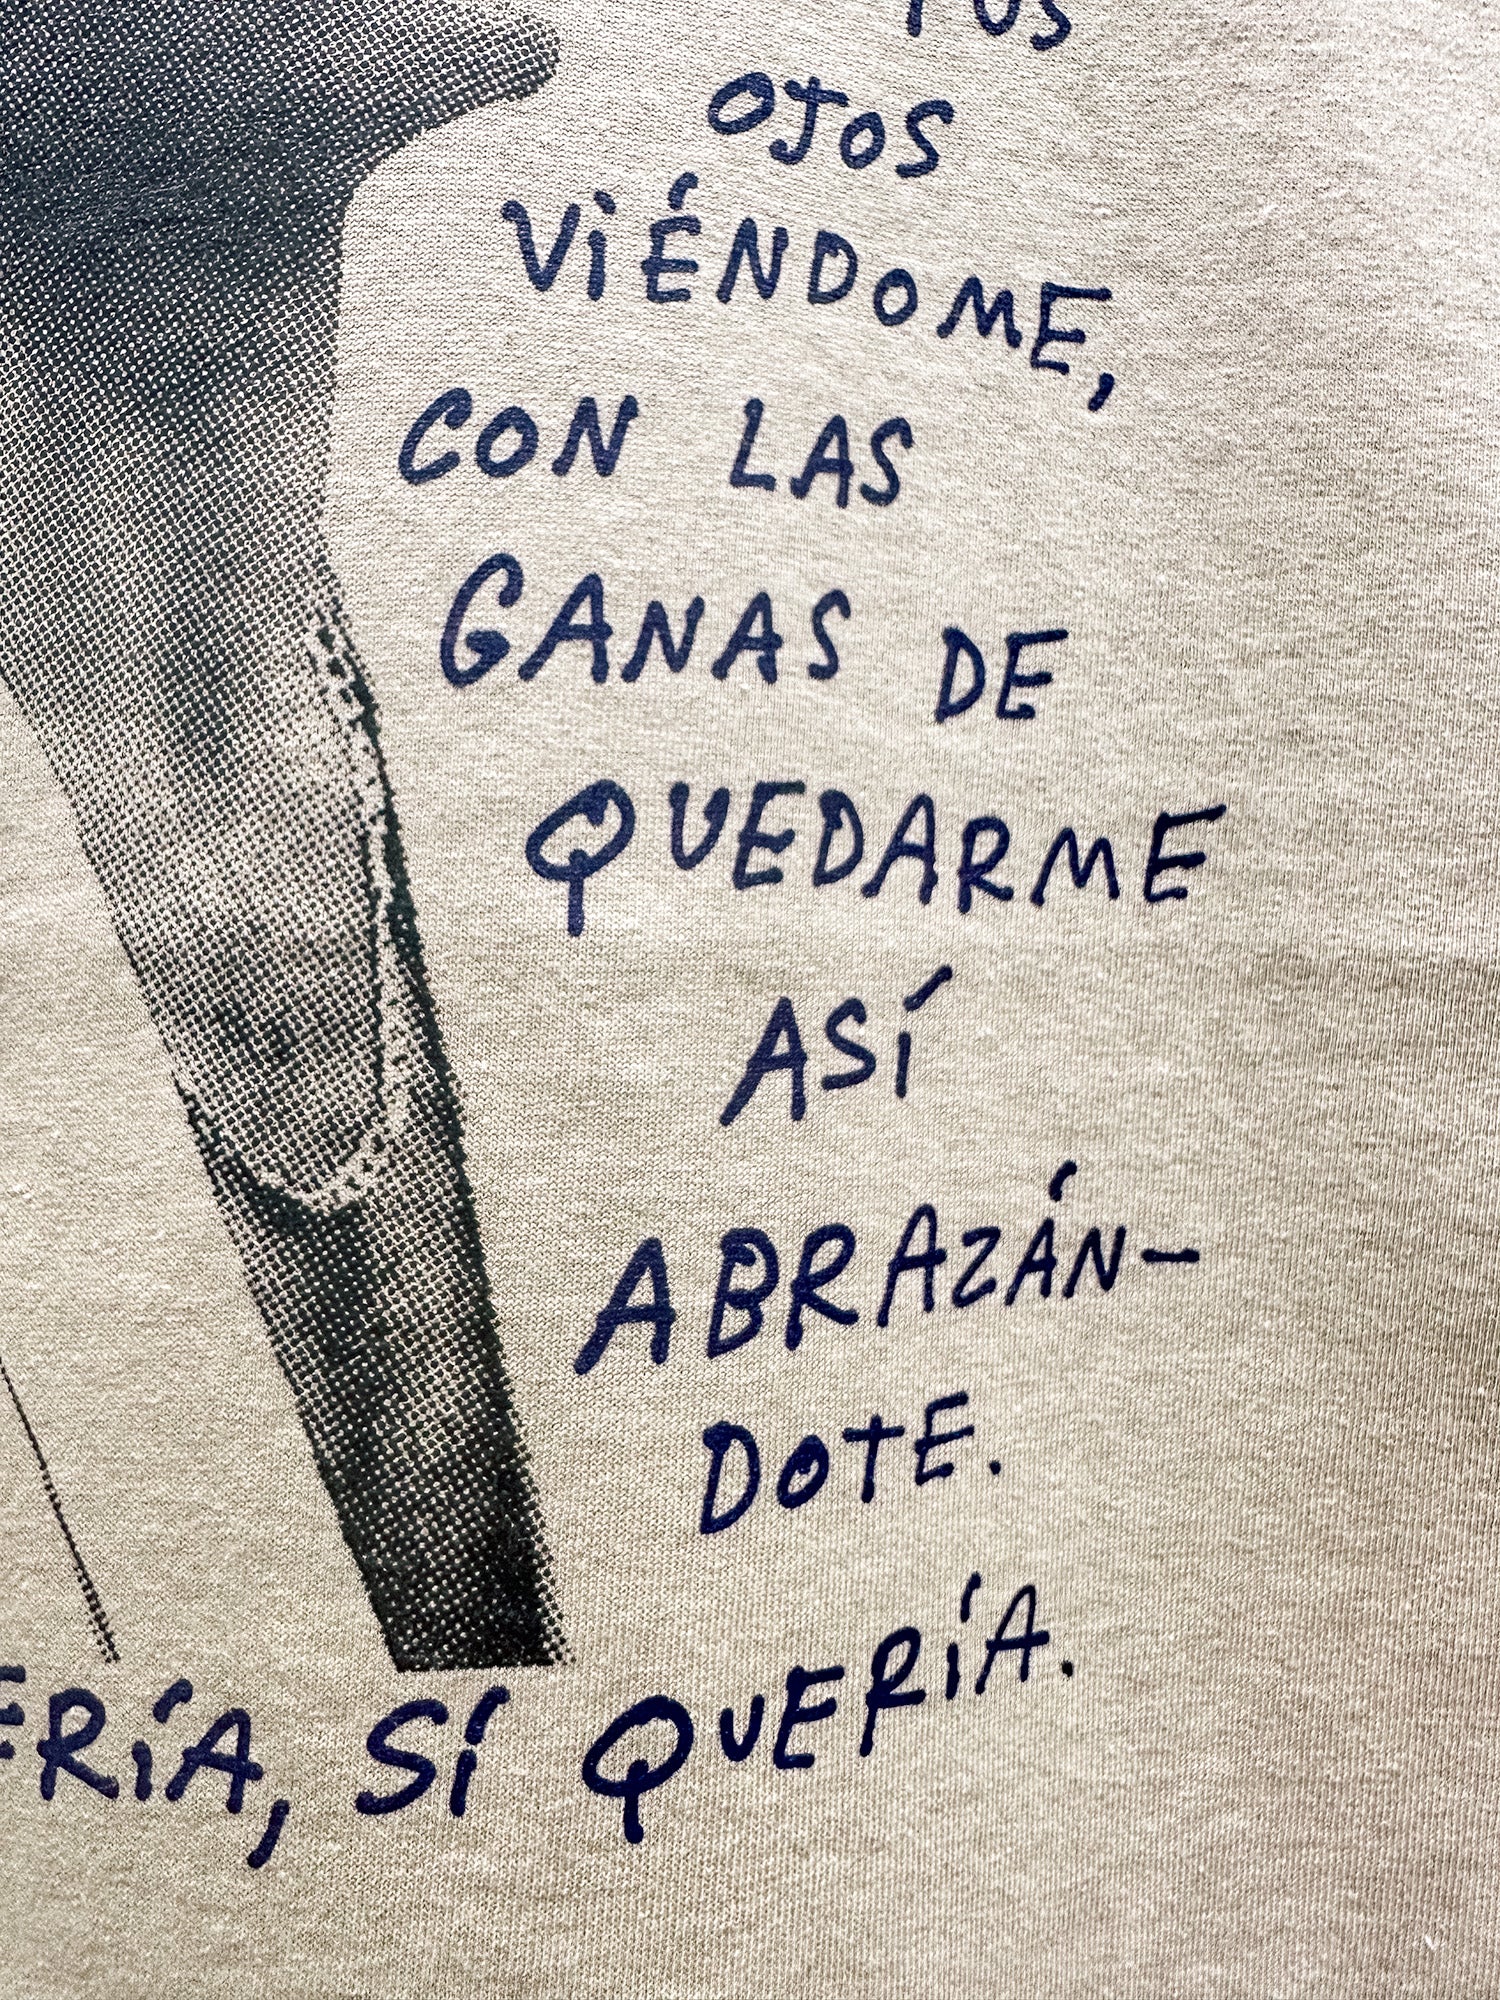 TUS
OJOS
VIÉNDOME,
CON LAS
GANAS DE
QUEDARME
ASÍ
ABRAZÁN-
DOTE.
ERÍA, SÍ QUERÍA.